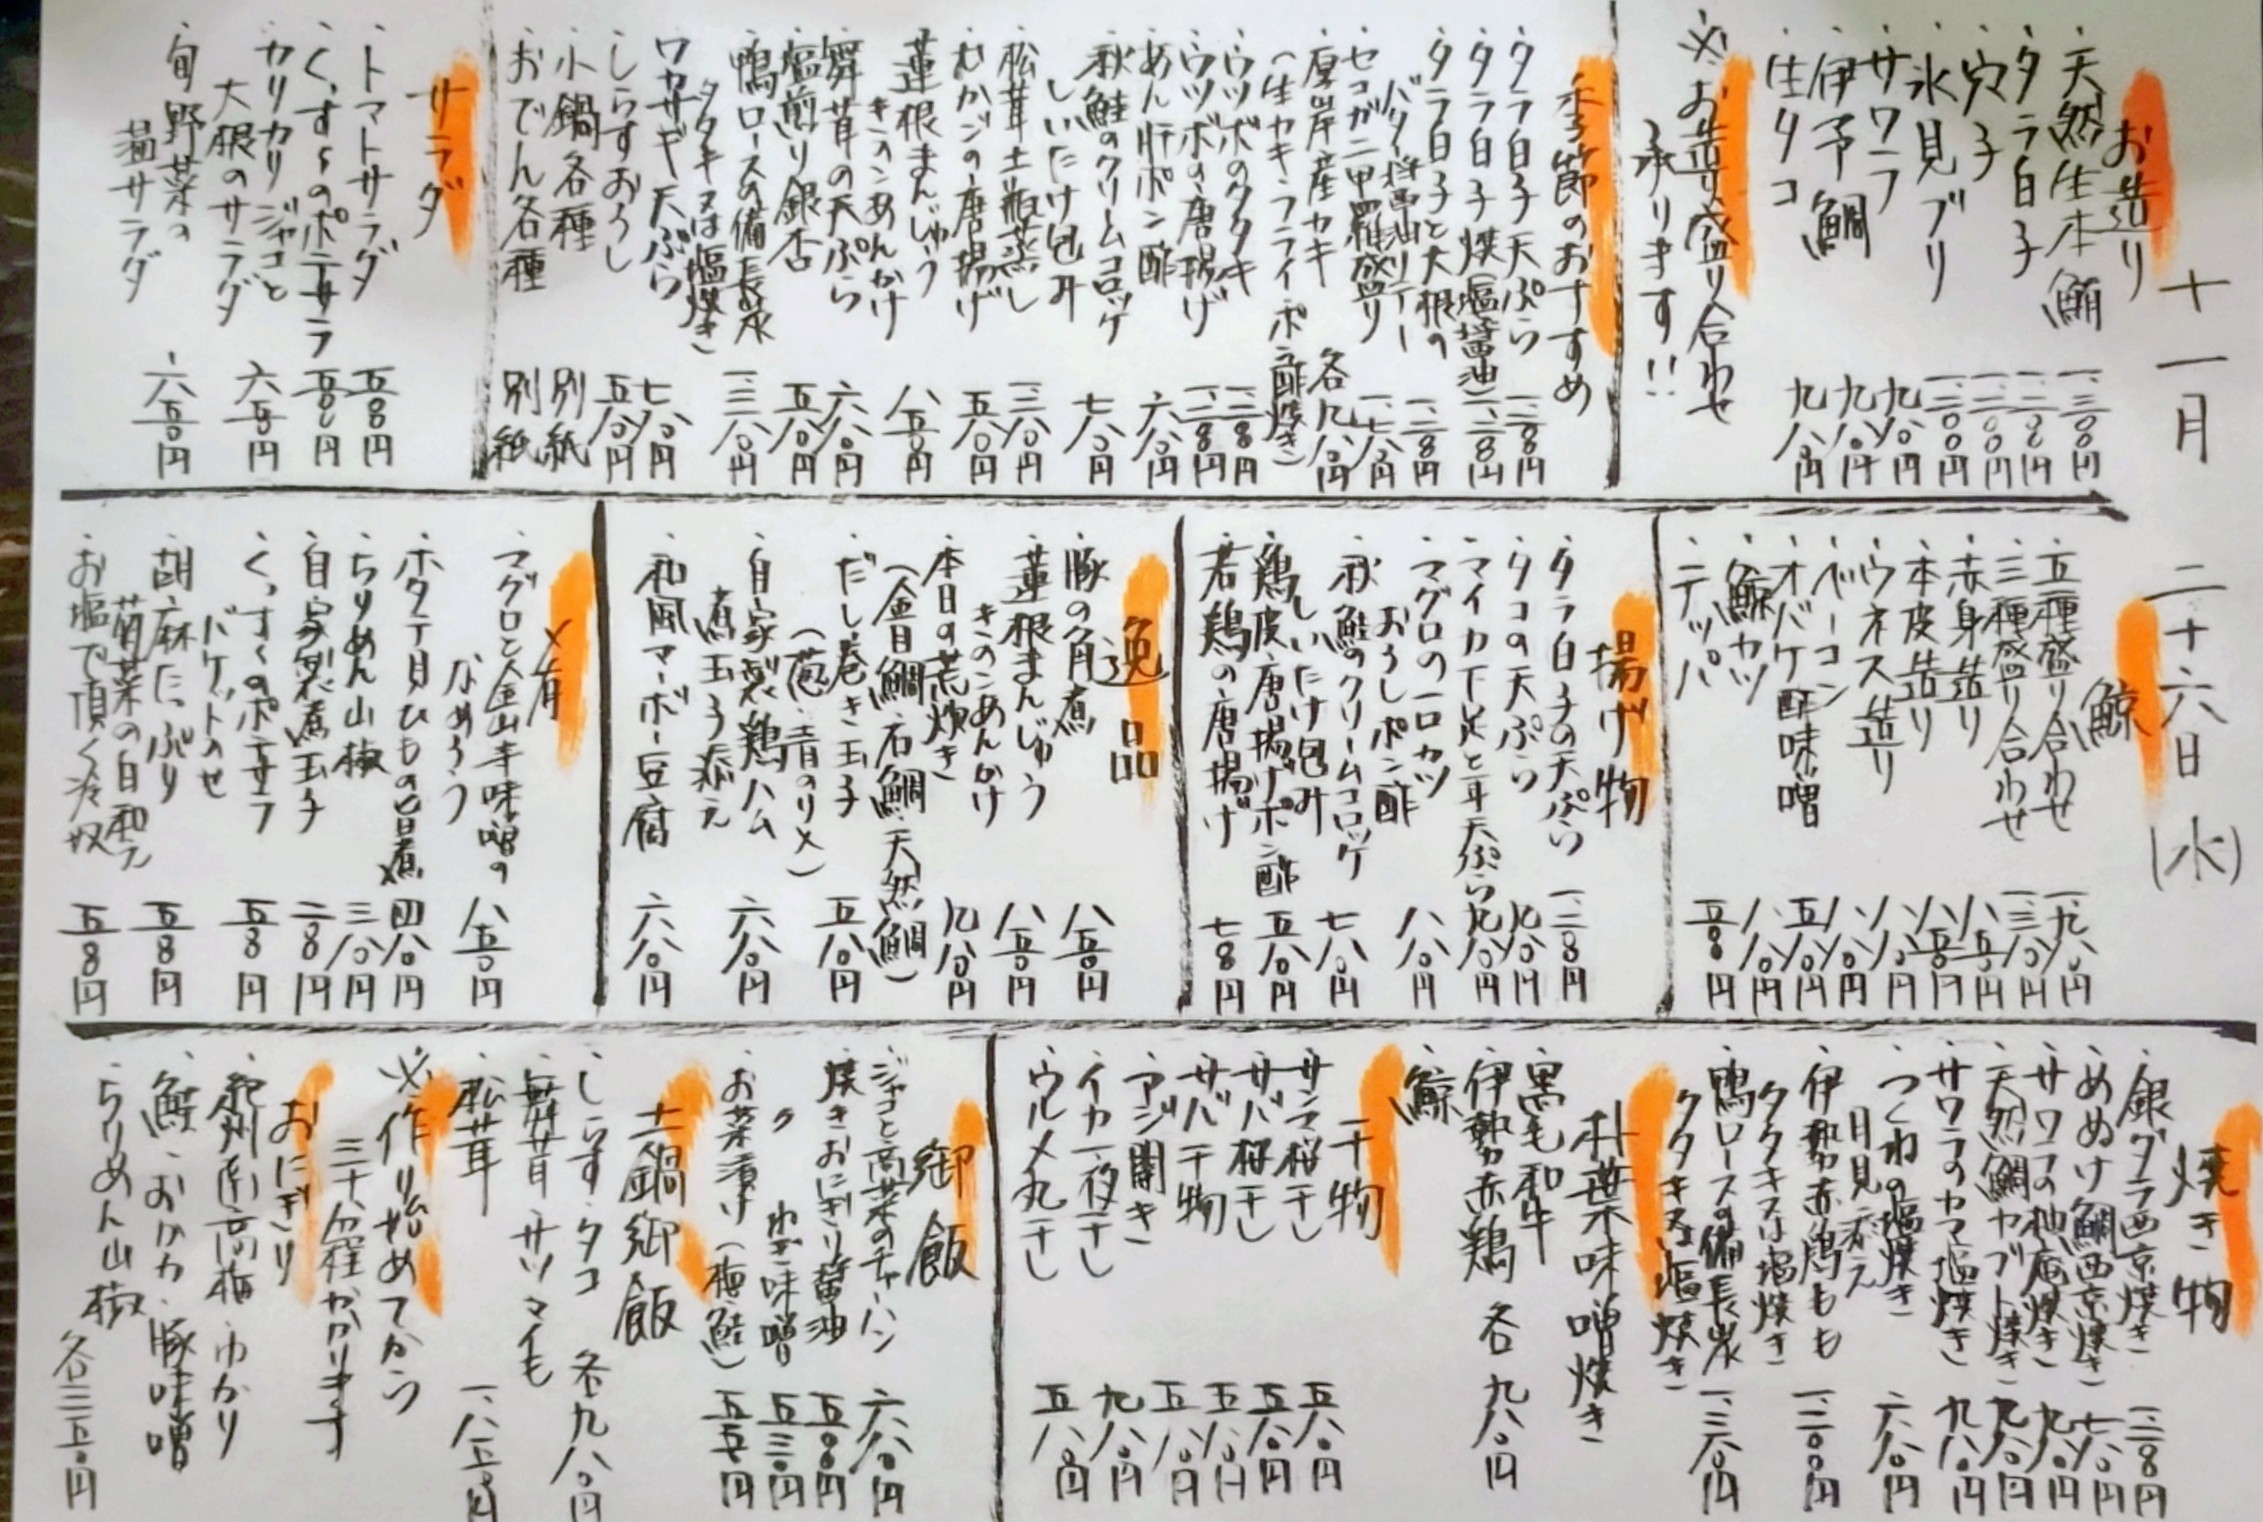 十一月二十六日(水)
お造り
・天然生本鮪 一、三〇〇円
・タラ白子 一、二〇〇円
・穴子 一、二〇〇円
・氷見ブリ 一、二〇〇円
・サワラ 九八〇円
・伊予鯛 九八〇円
・生タコ 九八〇円
※お造り盛り合わせ
承ります!!
季節のおすすめ
・タラ白子天ぷら 一、二八〇円
・タラ白子 炙塩醤油 一、二八〇円
・タラ白子と大根の
バター醤油ソテー 一、二八〇円
・セコガニ甲羅盛り 一、七八〇円
・厚岸産カキ 各九八〇円
(生カキ・フライ・ポン酢焼き)
・ウツボのタタキ 一、二八〇円
・ウツボの唐揚げ 一、二八〇円
・あん肝ポン酢 六八〇円
・秋鮭のクリームコロッケ
しいたけ包み 七八〇円
・松茸土瓶蒸し 一、三八〇円
・むかごの唐揚げ 五八〇円
・蓮根まんじゅう
きのこあんかけ 八五〇円
・舞茸の天ぷら 六八〇円
・塩煎り銀杏 五八〇円
・鴨ロースの備長炭
タタキ又は塩焼き 一、三八〇円
・ワカサギ天ぷら 七八〇円
・しらすおろし 五八〇円
・小鍋各種 別紙
・おでん各種 別紙
サラダ
・トマトサラダ 五八〇円
・くっすぅのポテサラ 五八〇円
・カリカリジャコと
大根のサラダ 六五〇円
・旬野菜の
温サラダ 六五〇円
鯨
・五種盛り合わせ 一、九八〇円
・三種盛り合わせ 一、三八〇円
・赤身造り 八五〇円
・本皮造り 八五〇円
・ウネス造り 八八〇円
・ベーコン 八八〇円
・オバケ酢味噌 五八〇円
・鯨カツ 八八〇円
・テッパ 五八〇円
揚げ物
・タラ白子の天ぷら 一、二八〇円
・タコの天ぷら 九八〇円
・マイカ下足と耳天ぷら 九八〇円
・マグロの一口カツ
おろしポン酢 八八〇円
・秋鮭のクリームコロッケ
しいたけ包み 七八〇円
・鶏皮唐揚げポン酢 五八〇円
・若鶏の唐揚げ 七八〇円
逸品
・豚の角煮 八五〇円
・蓮根まんじゅう
きのこあんかけ 八五〇円
・本日の荒炊き 九八〇円
(金目鯛・石鯛・天然鯛)
・だし巻き玉子 五八〇円
(葱・青のり〆)
・自家製鶏ハム
煮玉子添え 六八〇円
・和風マーボー豆腐 六八〇円
〆肴
・マグロと金山寺味噌の
なめろう 八五〇円
・ホタテ貝ひもの旨煮 四八〇円
・ちりめん山椒 三八〇円
・自家製煮玉子 二八〇円
・くっすぅのポテサラ
バケットのせ 五八〇円
・胡麻たっぷり
菊菜の白和え 五八〇円
・お塩で頂く冷奴 五八〇円
焼き物
・銀ダラ西京焼き 一、二八〇円
・めぬけ鯛西京焼き 七八〇円
・サワラの柚庵焼き 九八〇円
・天然鯛カブト焼き 九八〇円
・サワラのカマ塩焼き 九八〇円
・つくねの塩焼き
月見添え 六八〇円
・伊勢赤鶏もも
タタキ又は塩焼き 一、二〇〇円
・鴨ロースの備長炭
タタキ又は塩焼き 一、三八〇円
朴葉味噌焼き
・黒毛和牛
・伊勢赤鶏 各九八〇円
・鯨
干物
・サンマ桜干し 五八〇円
・サバ桜干し 五八〇円
・サバ干物 五八〇円
・アジ開き 五八〇円
・イカ一夜干し 九八〇円
・ウルメ丸干し 五八〇円
御飯
・ジャコと高菜のチャーハン 六八〇円
・焼きおにぎり醤油 五〇〇円
・〃 ねぎ味噌 五三〇円
・お茶漬け(梅・鮭) 五五〇円
土鍋御飯
・しらす・タコ 各九八〇円
・舞茸・サツマイモ
・松茸 一、八五〇円
※作り始めてから
三十分程かかります
おにぎり
・紀州南高梅・ゆかり
・鮭・おかか・豚味噌
・ちりめん山椒 各三五〇円